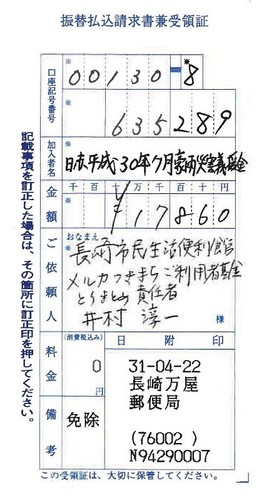 振替払込請求書兼受領証
口座記号番号
00130-8
635289
加入者名
日赤平成30年7月豪雨災害義援金
金額
千 百 十 万 千 百 十 円
¥117860
ご依頼人
おなまえ
長崎市民生活便利館
メルカつきまちご利用者募金
とりまとめ責任者
井村 淳一
様
料金
(消費税込み)
0
円
日附印
31-04-22
長崎万屋
郵便局
(76002)
N94290007
備考
免除
記載事項を訂正した場合は、その箇所に訂正印を押してください。
この受領証は、大切に保管してください。